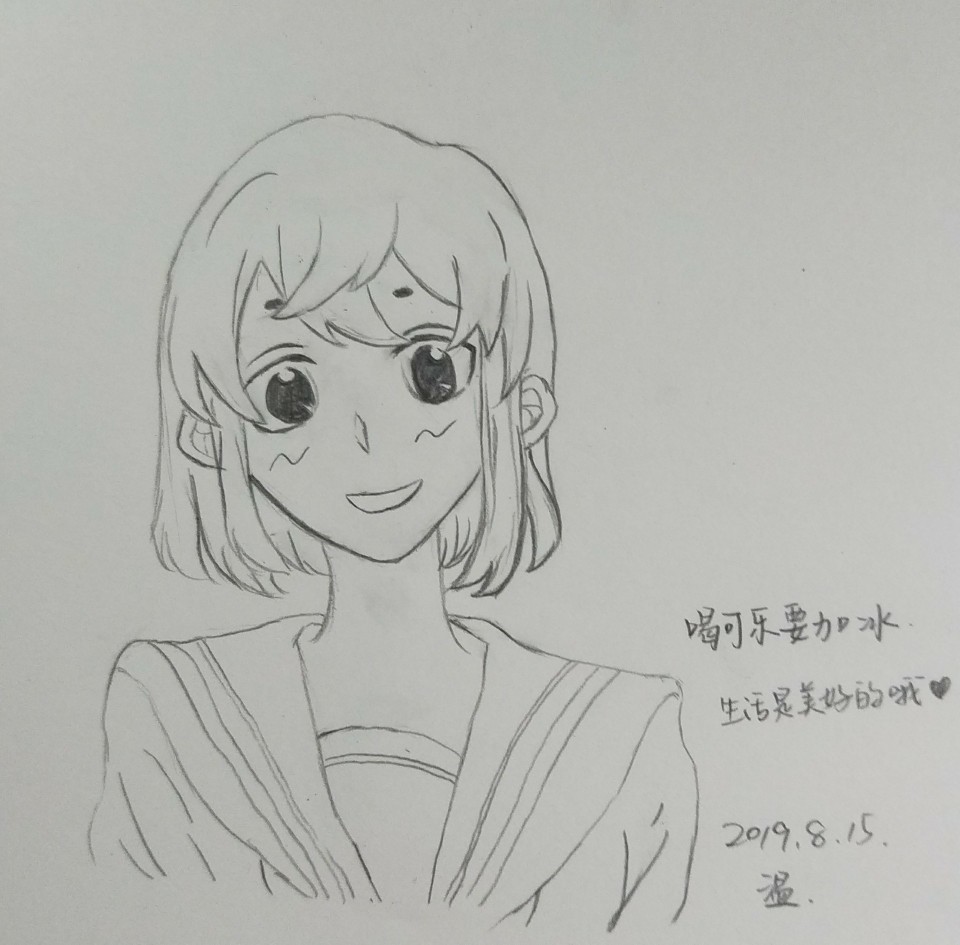 喝可乐要加冰.
生活是美好的哦♥
2019.8.15.
温.